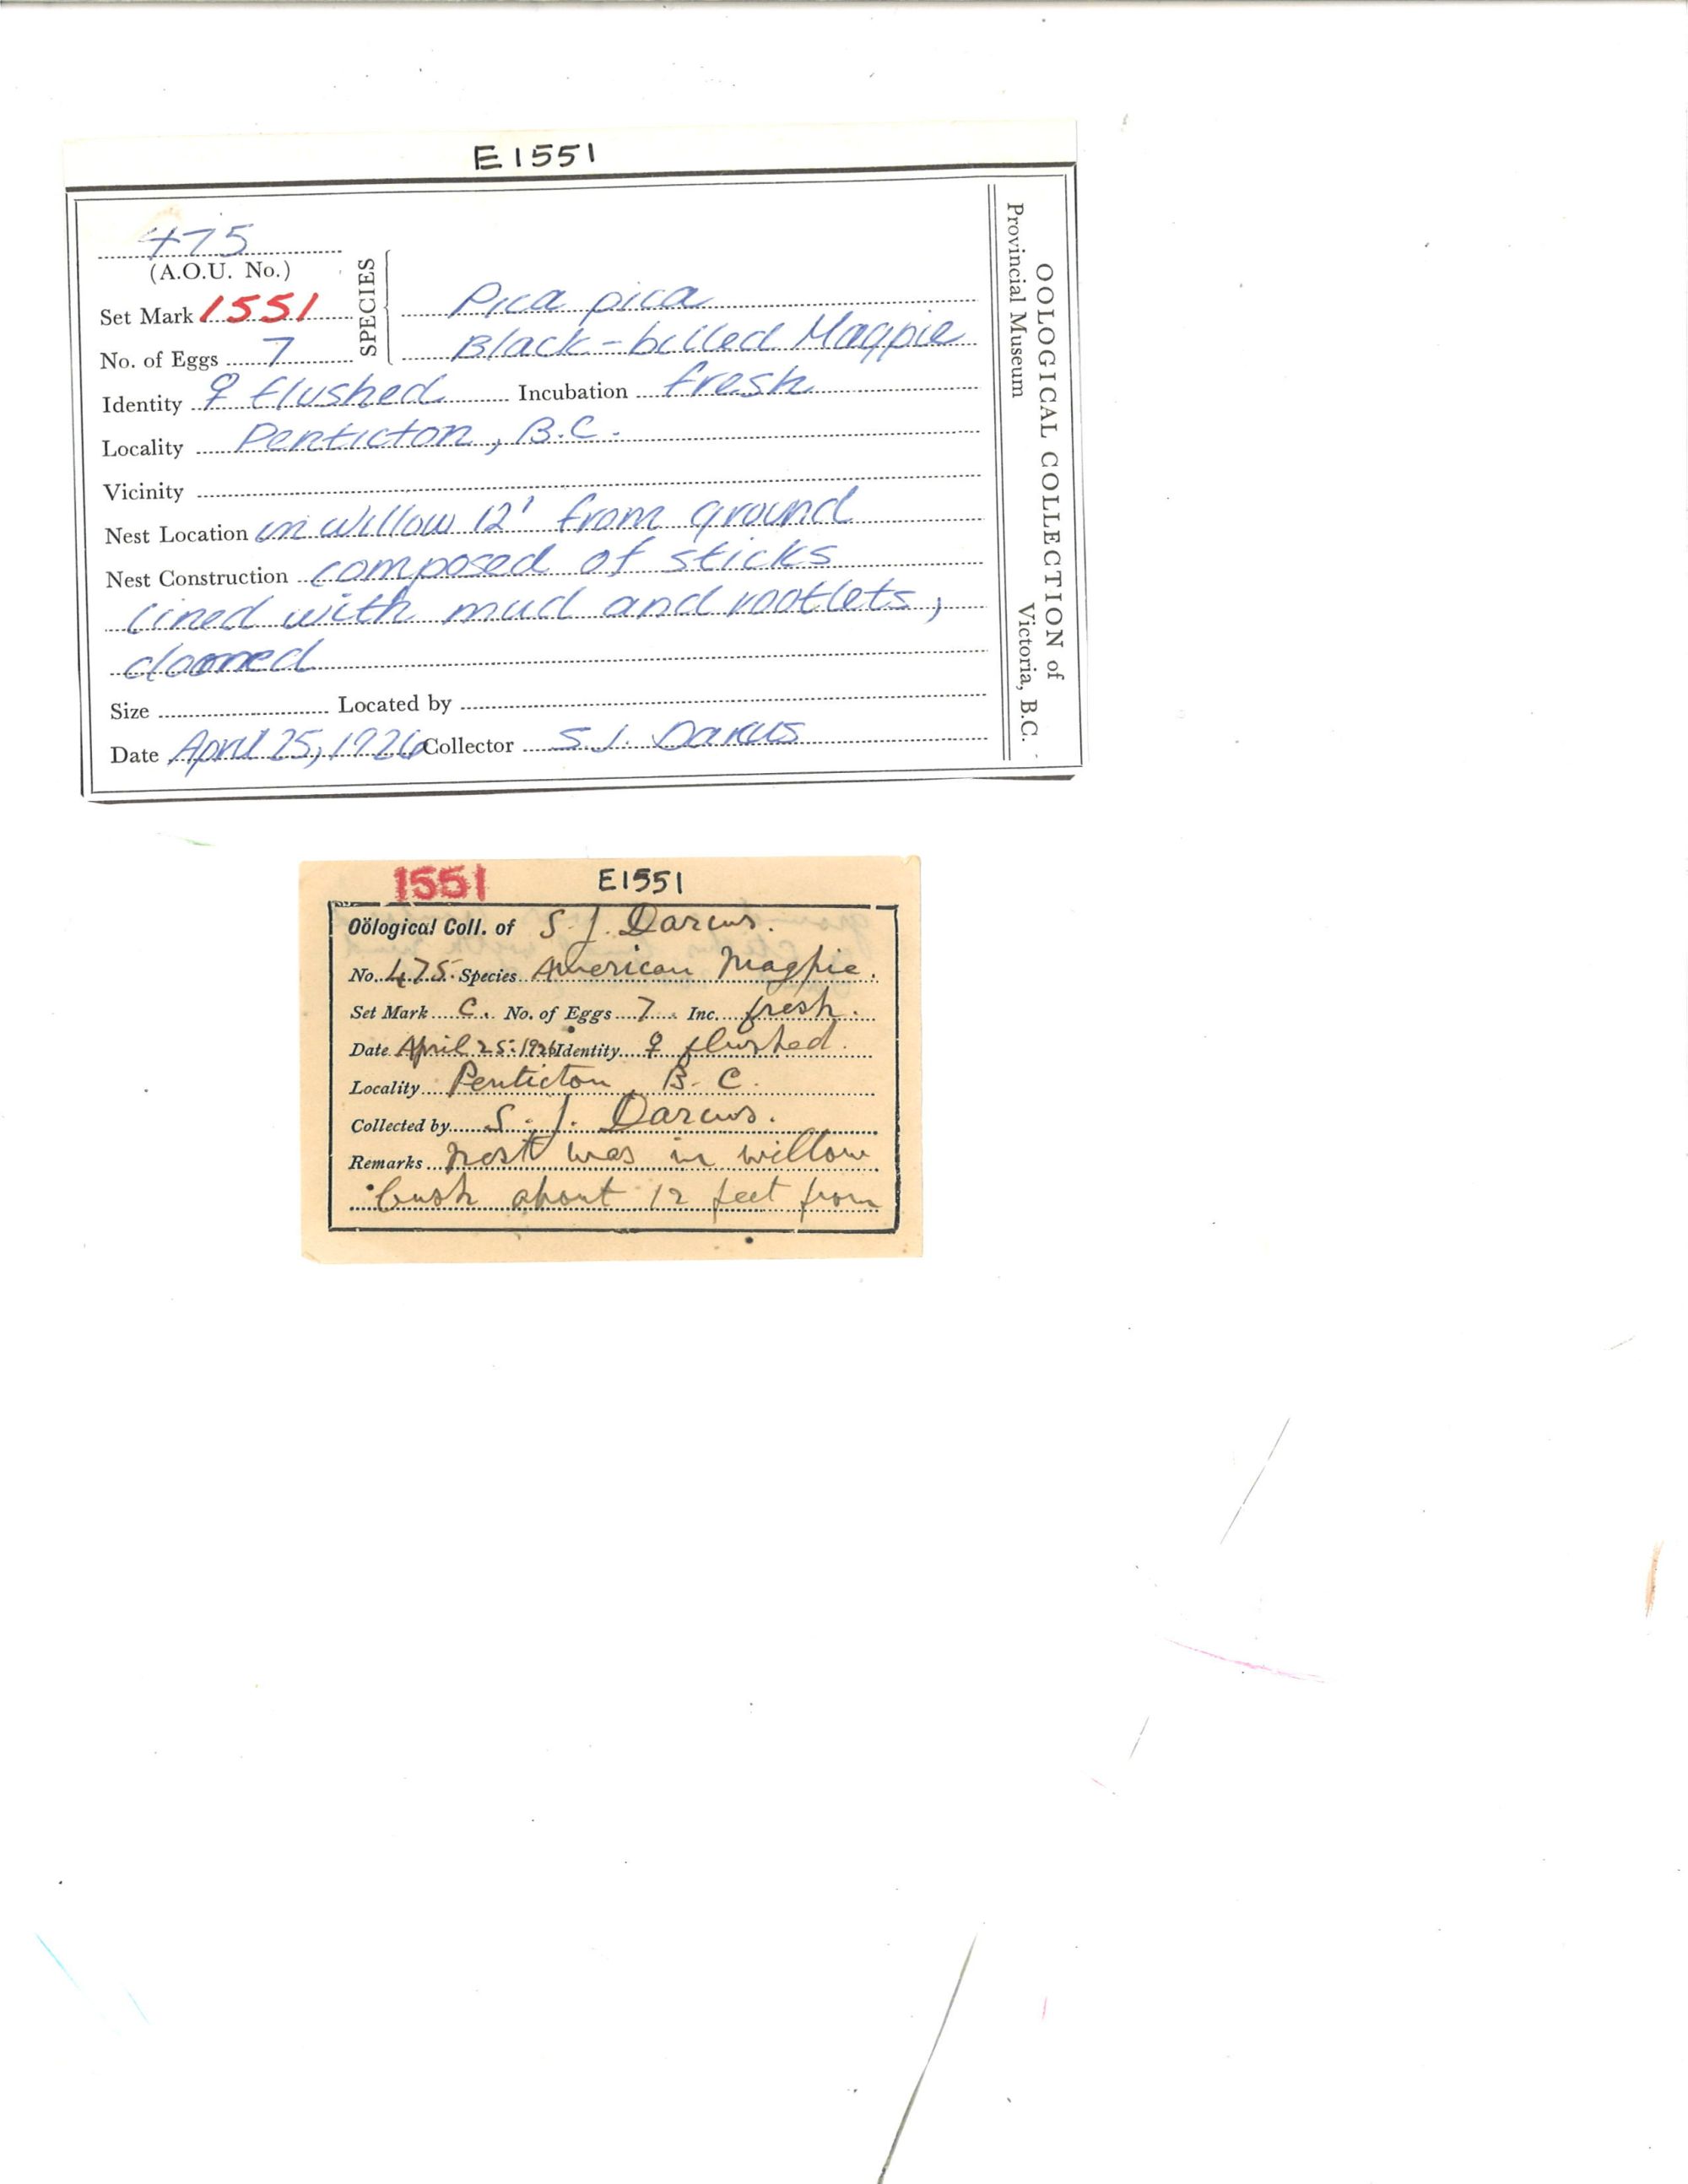 E1551
475
(A.O.U. No.)
Set Mark 1551
No. of Eggs 7
SPECIES
Pica pica
Black-billed Magpie
Identity ♀ flushed Incubation fresh
Locality Penticton, B.C.
Vicinity
Nest Location in willow 12' from ground
Nest Construction composed of sticks
lined with mud and rootlets,
domed
Size Located by
Date April 25, 1926 Collector S.J. Darcus
OOLOGICAL COLLECTION of
Provincial Museum Victoria, B.C.
1551 E1551
Oölogical Coll. of S. J. Darcus.
No. 475. Species American Magpie.
Set Mark C. No. of Eggs 7 Inc. fresh.
Date April 25: 1926 Identity ♀ flushed.
Locality Penticton, B. C.
Collected by S. J. Darcus.
Remarks nest was in willow
bush about 12 feet from